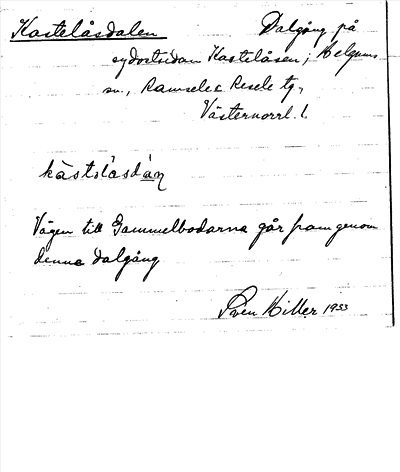 Kastelåsdalen Dalgång på
sydostsidan Kastelåsen, Helgums
sn., Ramsele & Resele tg,
Västernorrl. l.
Vägen till Gammelbodarna går fram genom
denna dalgång
Sven Hiller 1933